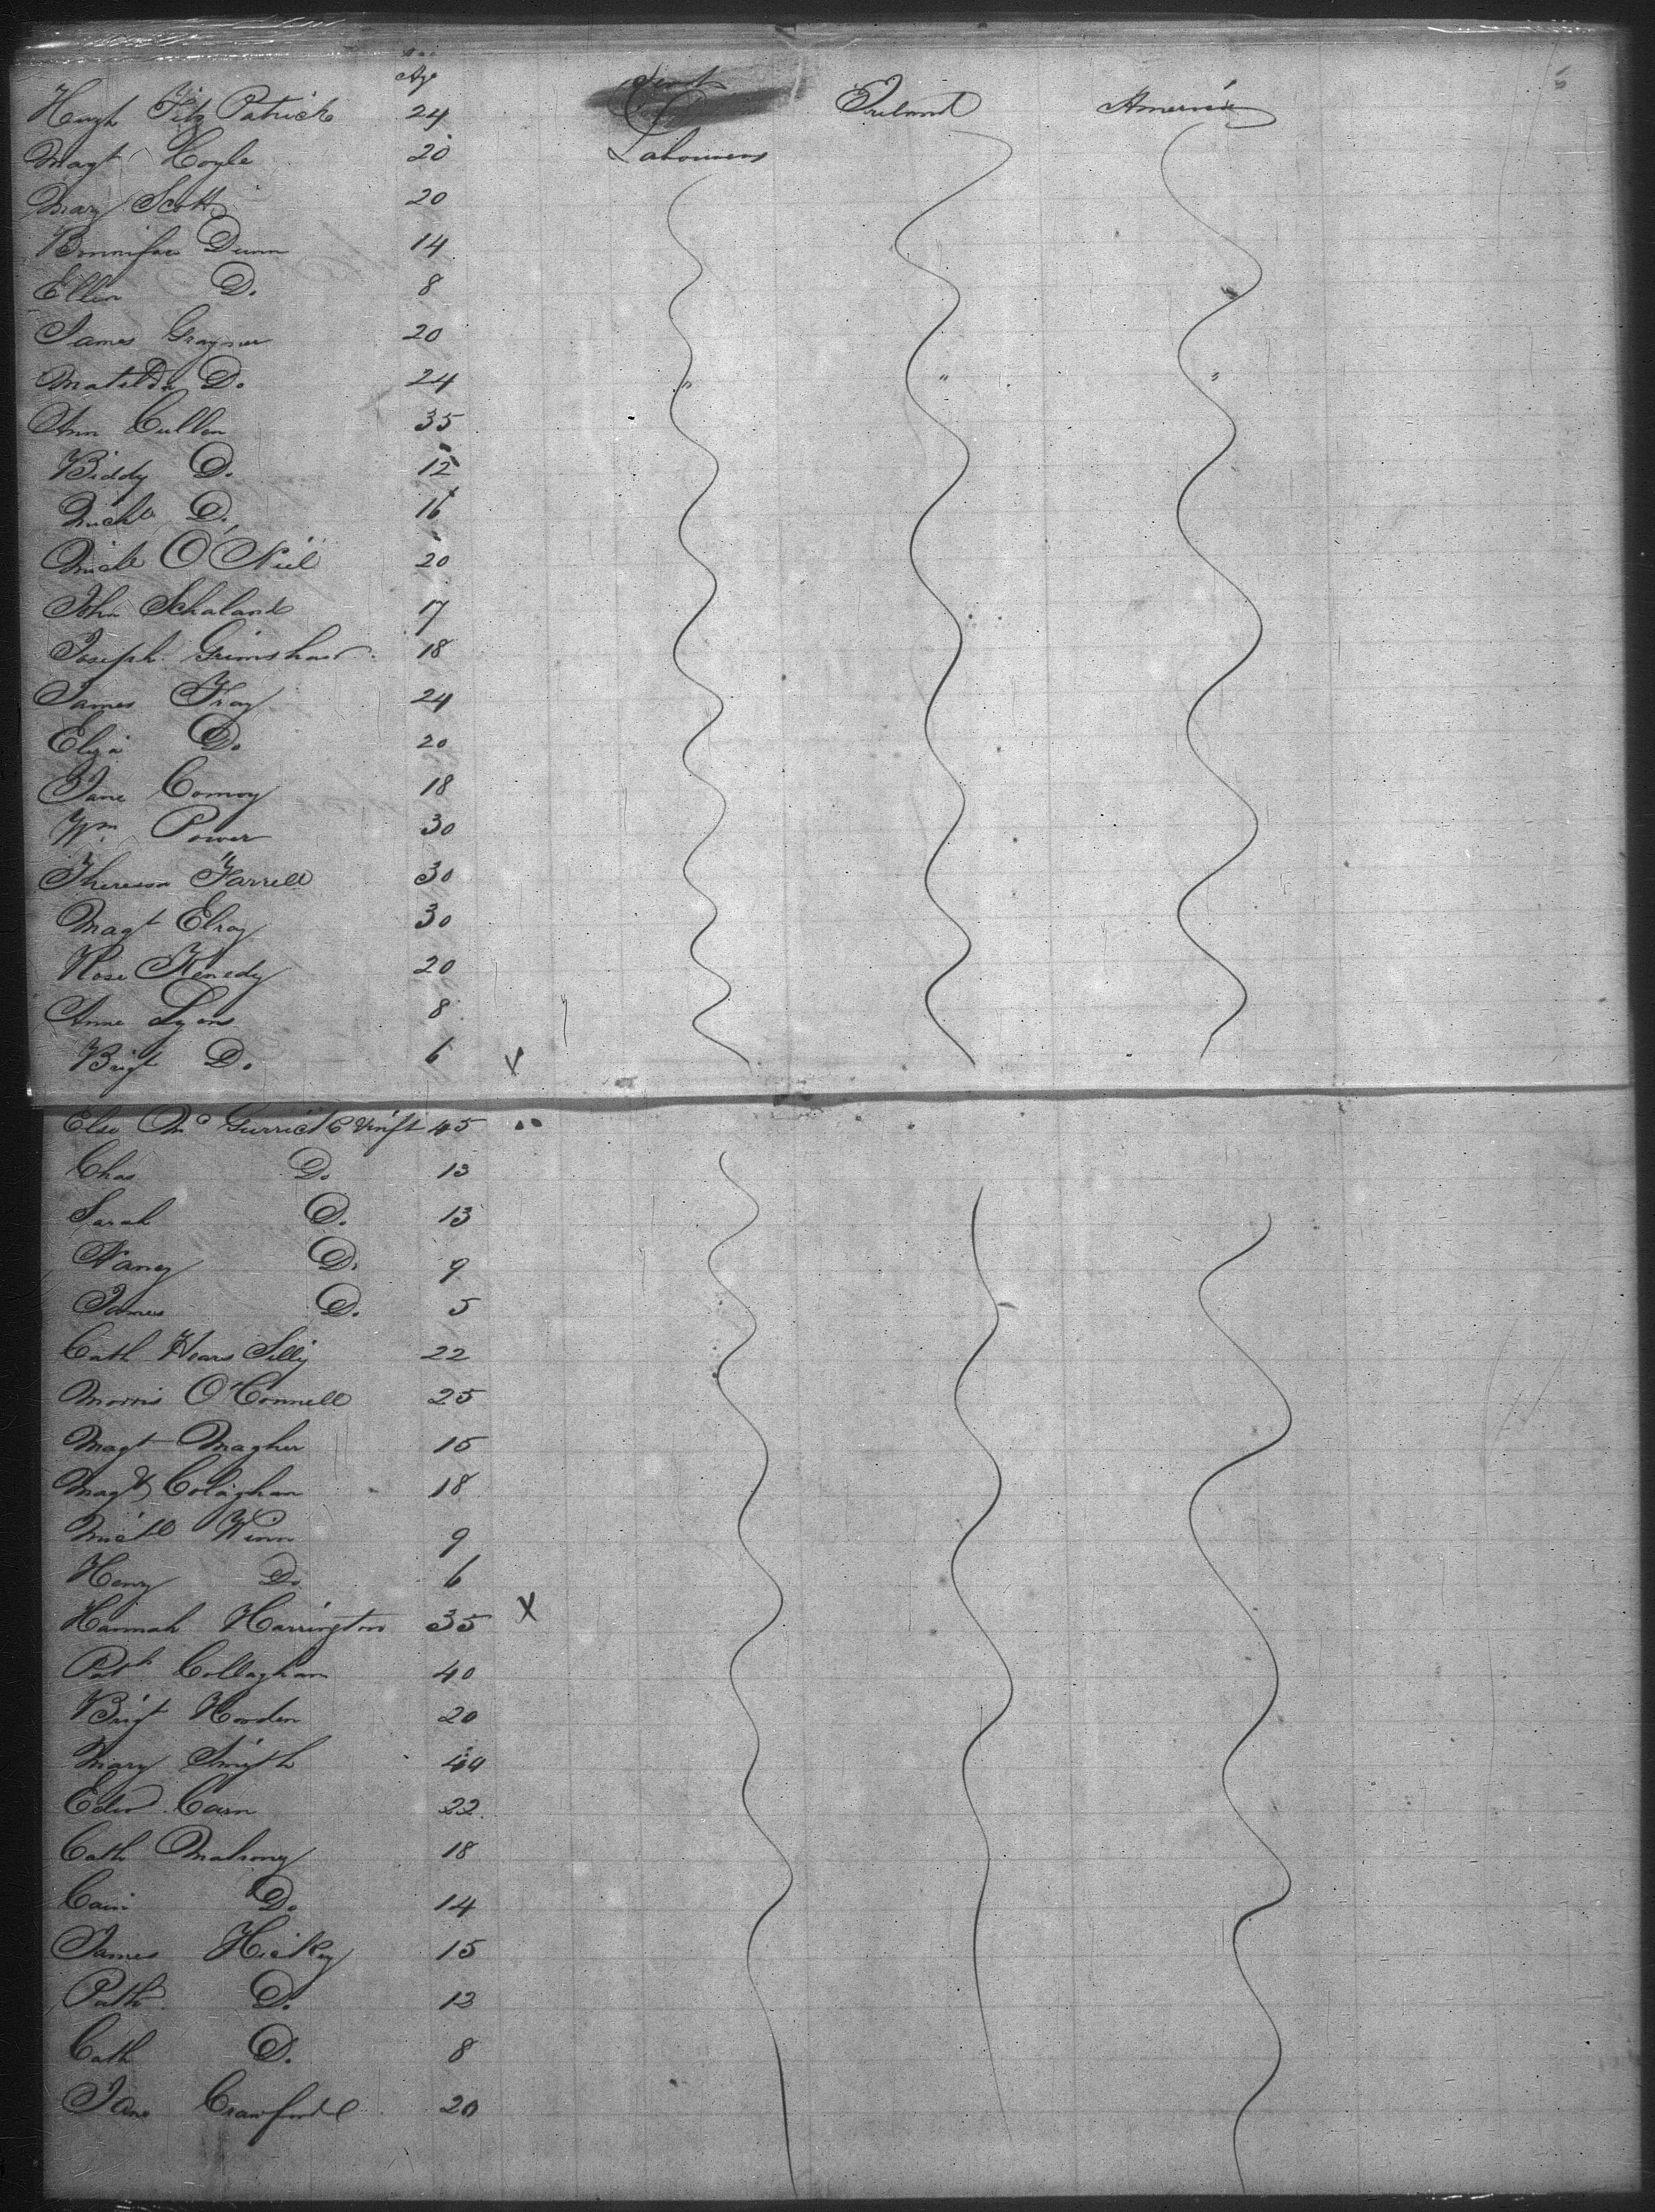 Age
Hugh Fitz Patrick 24 Ireland America
Magt Coyle 20 Labourers
Mary Scott 20
Bonniface Dunn 14
Ellen Do 8
James Graynor 20
Matilda Do 24 " " "
Ann Cullen 35
Biddy Do 12
Michl Do 16
Michl O'Niel 20
John Schaland 17
Joseph Grimshaw 18
James Fray 24
Eliza Do 20
Jane Conroy 18
Wm Power 30
Theresa Farrell 30
Magt Elroy 30
Rose Kenedy 20
Anne Lyons 8
Brigt Do 6 X
Mc 45
Chas Do 13
Sarah Do 13
Nancy Do 9
James Do 5
Cath 22
Morris O'Connell 25
Magt Magher 15
Magt Colaghan 18
Michl Winn 9
Henry Do 6
Hannah Harrington 35 X
Patk Collaghan 40
Brigt Howden 20
Mary Smyth 40
Edwd Carn 22
Cath Mahony 18
Do 14
James Hickey 15
Patk Do 12
Cath Do 8
Jane Crawford 20